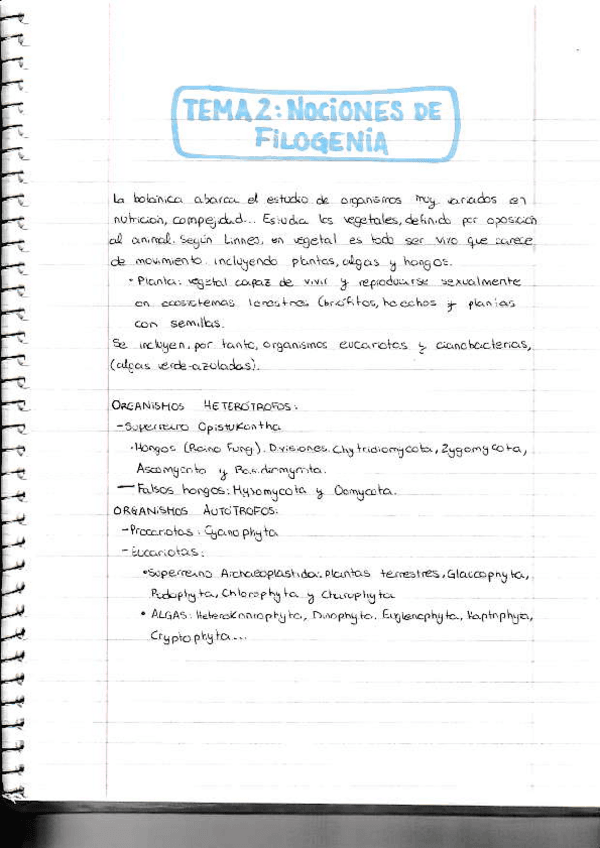 TEMA 2: NOCIONES DE
FILOGENIA
La botánica abarca el estudio de organismos muy variados en
nutrición, complejidad... Estudia los vegetales, definido por oposición
al animal. Según Linneo, un vegetal es todo ser vivo que carece
de movimiento, incluyendo plantas, algas y hongos.
• Planta: vegetal capaz de vivir y reproducirse sexualmente
en ecosistemas terrestres (briófitos, helechos y plantas
con semillas.
Se incluyen, por tanto, organismos eucariotas y cianobacterias,
(algas verde-azuladas).
ORGANISMOS HETERÓTROFOS:
- Superreino Opistokontha
• Hongos (Reino Fungi). Divisiones. Chytridiomycota, Zygomycota,
Ascomycota y Basidiomycota.
- Falsos hongos: Myxomycota y Oomycota.
ORGANISMOS AUTÓTROFOS:
- Procariotas: Cyanophyta
- Eucariotas:
• Superreino Archaeoplastida: plantas terrestres, Glaucophyta,
Rodophyta, Chlorophyta y Charophyta
• ALGAS: Heterokontophyta, Dinophyta, Euglenophyta, Haptophyta,
Cryptophyta...